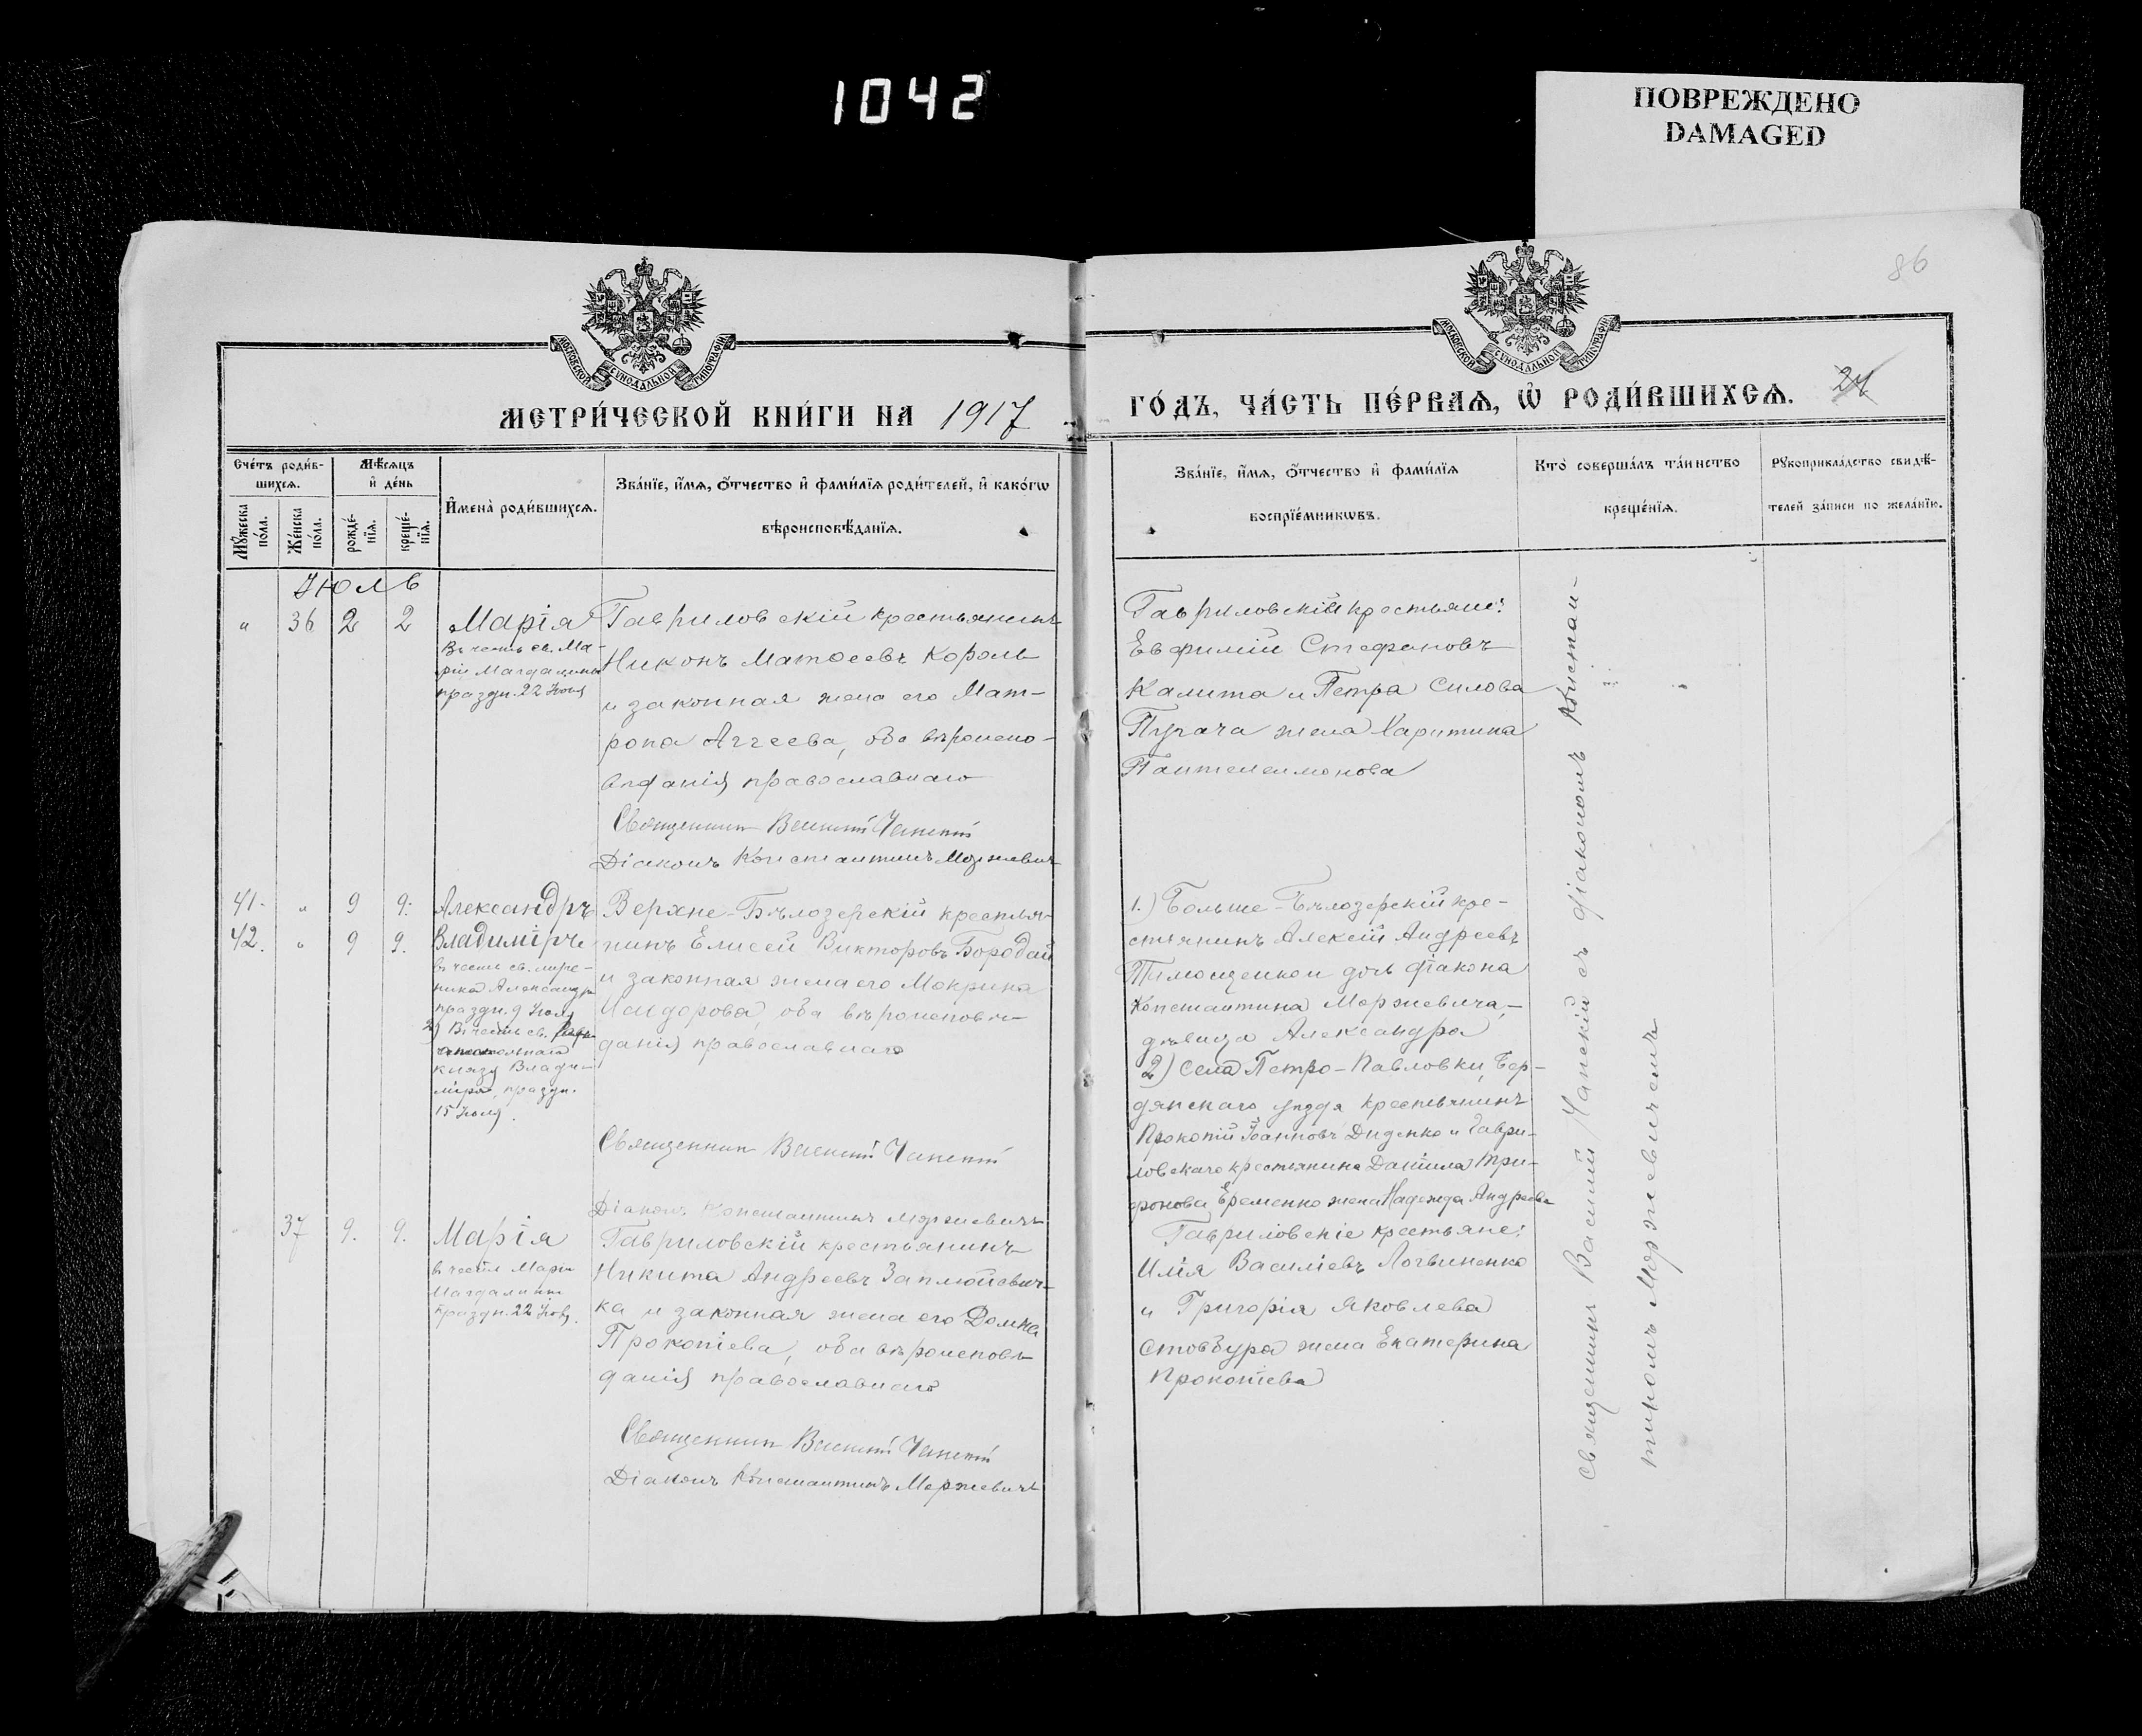 1042
ПОВРЕЖДЕНО
DAMAGED
86
МОСКОВСКОЙ СѴНОДАЛЬНОЙ ТИПОГРАФІИ
МОСКОВСКОЙ СѴНОДАЛЬНОЙ ТИПОГРАФІИ
МЕТРИ́ЧЕСКОЙ КНИ́ГИ НА 1917
ГО́ДЪ, ЧА́СТЬ ПЕ́РВАѦ, Ѡ҆ РОДИ́ВШИХСѦ.
24
Сче́тъ роди́в-
шихсѧ.
Мѣ́сѧцъ
и҆ де́нь
Мꙋ́жеска по́ла.
Же́нска по́ла.
рожде́-
нїѧ.
креще́-
нїѧ.
И҆мена̀ роди́вшихсѧ.
Зва́нїе, и҆́мѧ, ѻ҆́тчество и҆ фами́лїѧ роди́телей, и҆ како́гѡ
вѣроисповѣ́данїѧ.
Зва́нїе, и҆́мѧ, ѻ҆́тчество и҆ фами́лїѧ
воспрїе́мникѡвъ.
Кто̀ соверша́лъ та́инство
креще́нїѧ.
Рꙋкоприкла́дство свидѣ́-
телей за́писи по жела́нїю.
Іюль
" 36 2 2 Марія
Въ честь св. Ма-
ріи Магдалины
праздн. 22 Іюля
Гавриловскій крестьянинъ
Никонъ Матѳеевъ Король
и законная жена его Мат-
рона Аггеева, оба вѣроиспо-
вѣданія православнаго
Священникъ Василій Чапскій
Діаконъ Константинъ Моржевичъ
Гавриловскій крестьяне:
Евфимій Стефановъ
Калита и Петра Силова
Пугача жена Харитина
Пантелеимонова
41. " 9 9. Александръ
42. " 9 9. Владиміръ
въ честь св.
Александра
праздн. 9 Іюля
2) Въ честь св. Равно-
апостольнаго
князя Влади-
міра, праздн.
15 Іюля.
Верхне-Бѣлозерскій крестья-
нинъ Елисей Викторовъ Бородай
и законная жена его Мокрина
Исидорова, оба вѣроисповѣ-
данія православнаго
Священникъ Василій Чапскій
Діаконъ Константинъ Моржевичъ
1.) Больше-Бѣлозерскій кре-
стьянинъ Алексій Андреевъ
Тимощенко и дочь діакона
Константина Моржевича,-
дѣвица Александра
2) Села Петро-Павловки, Бер-
дянскаго уѣзда крестьянинъ
Прокопій Іоанновъ Диденко и Гаври-
ловскаго крестьянина Даніила Три-
фонова Еременко жена Надежда Андреева
37 9. 9. Марія
въ честь Маріи
Магдалины
праздн. 22 Іюля.
Гавриловскій крестьянинъ
Никита Андреевъ
и законная жена его Домна
Прокопіева, оба вѣроисповѣ-
данія православнаго
Священникъ Василій Чапскій
Діаконъ Константинъ Моржевичъ
Гавриловскіе крестьяне:
Илія Василіевъ Логвиненко
и Григорія Яковлева
Стовбура жена Екатерина
Прокопіева
Священникъ Василій Чапскій съ діакономъ Констан-
тиномъ Моржевичемъ